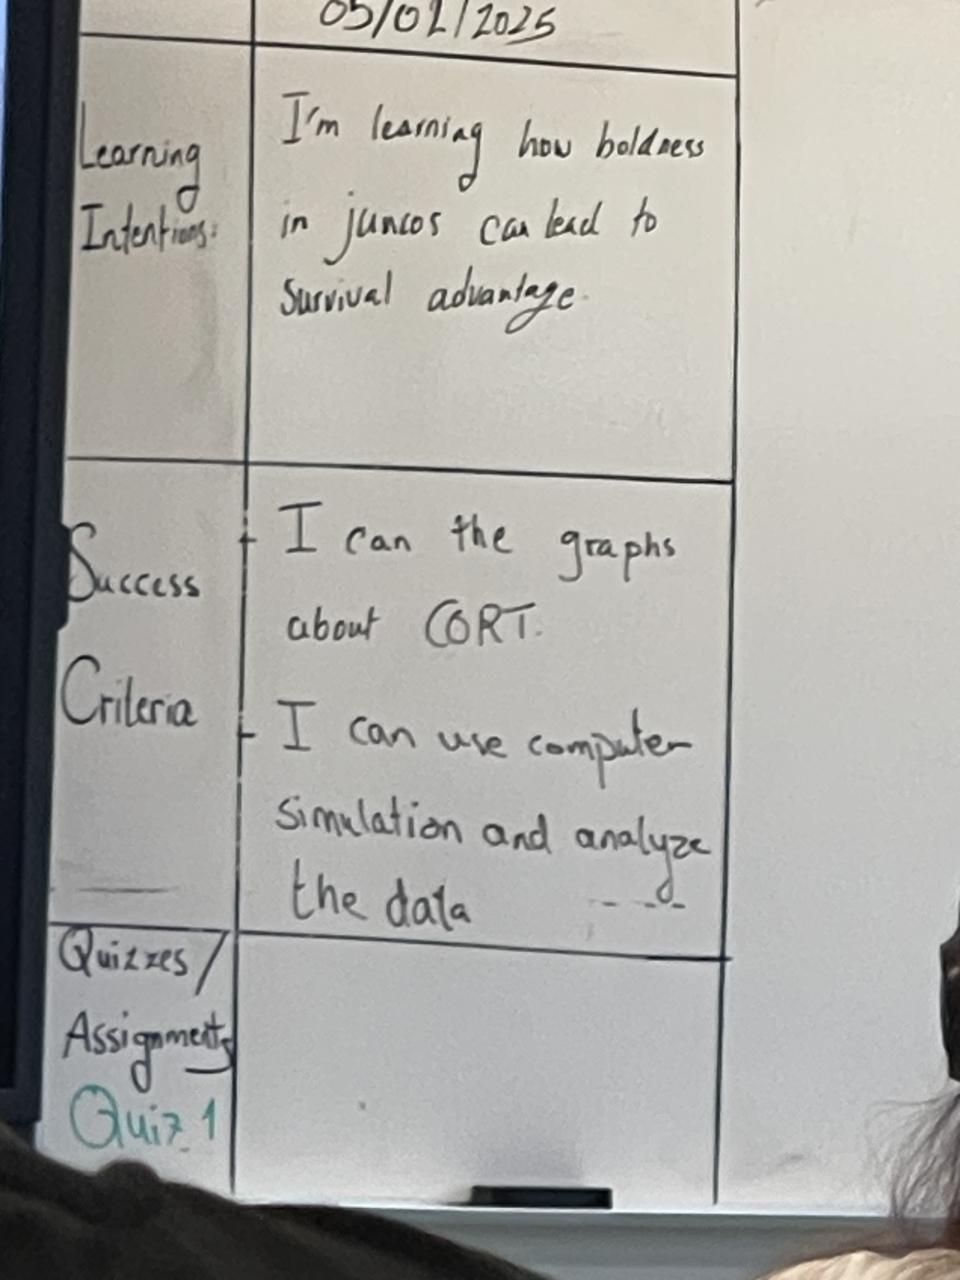 05/02/2025
Learning
Intentions:
I'm learning how boldness
in juncos can lead to
survival advantage.
Success
Criteria
- I can the graphs
about CORT.
- I can use computer
simulation and analyze
the data ----
Quizzes/
Assignments
Quiz 1